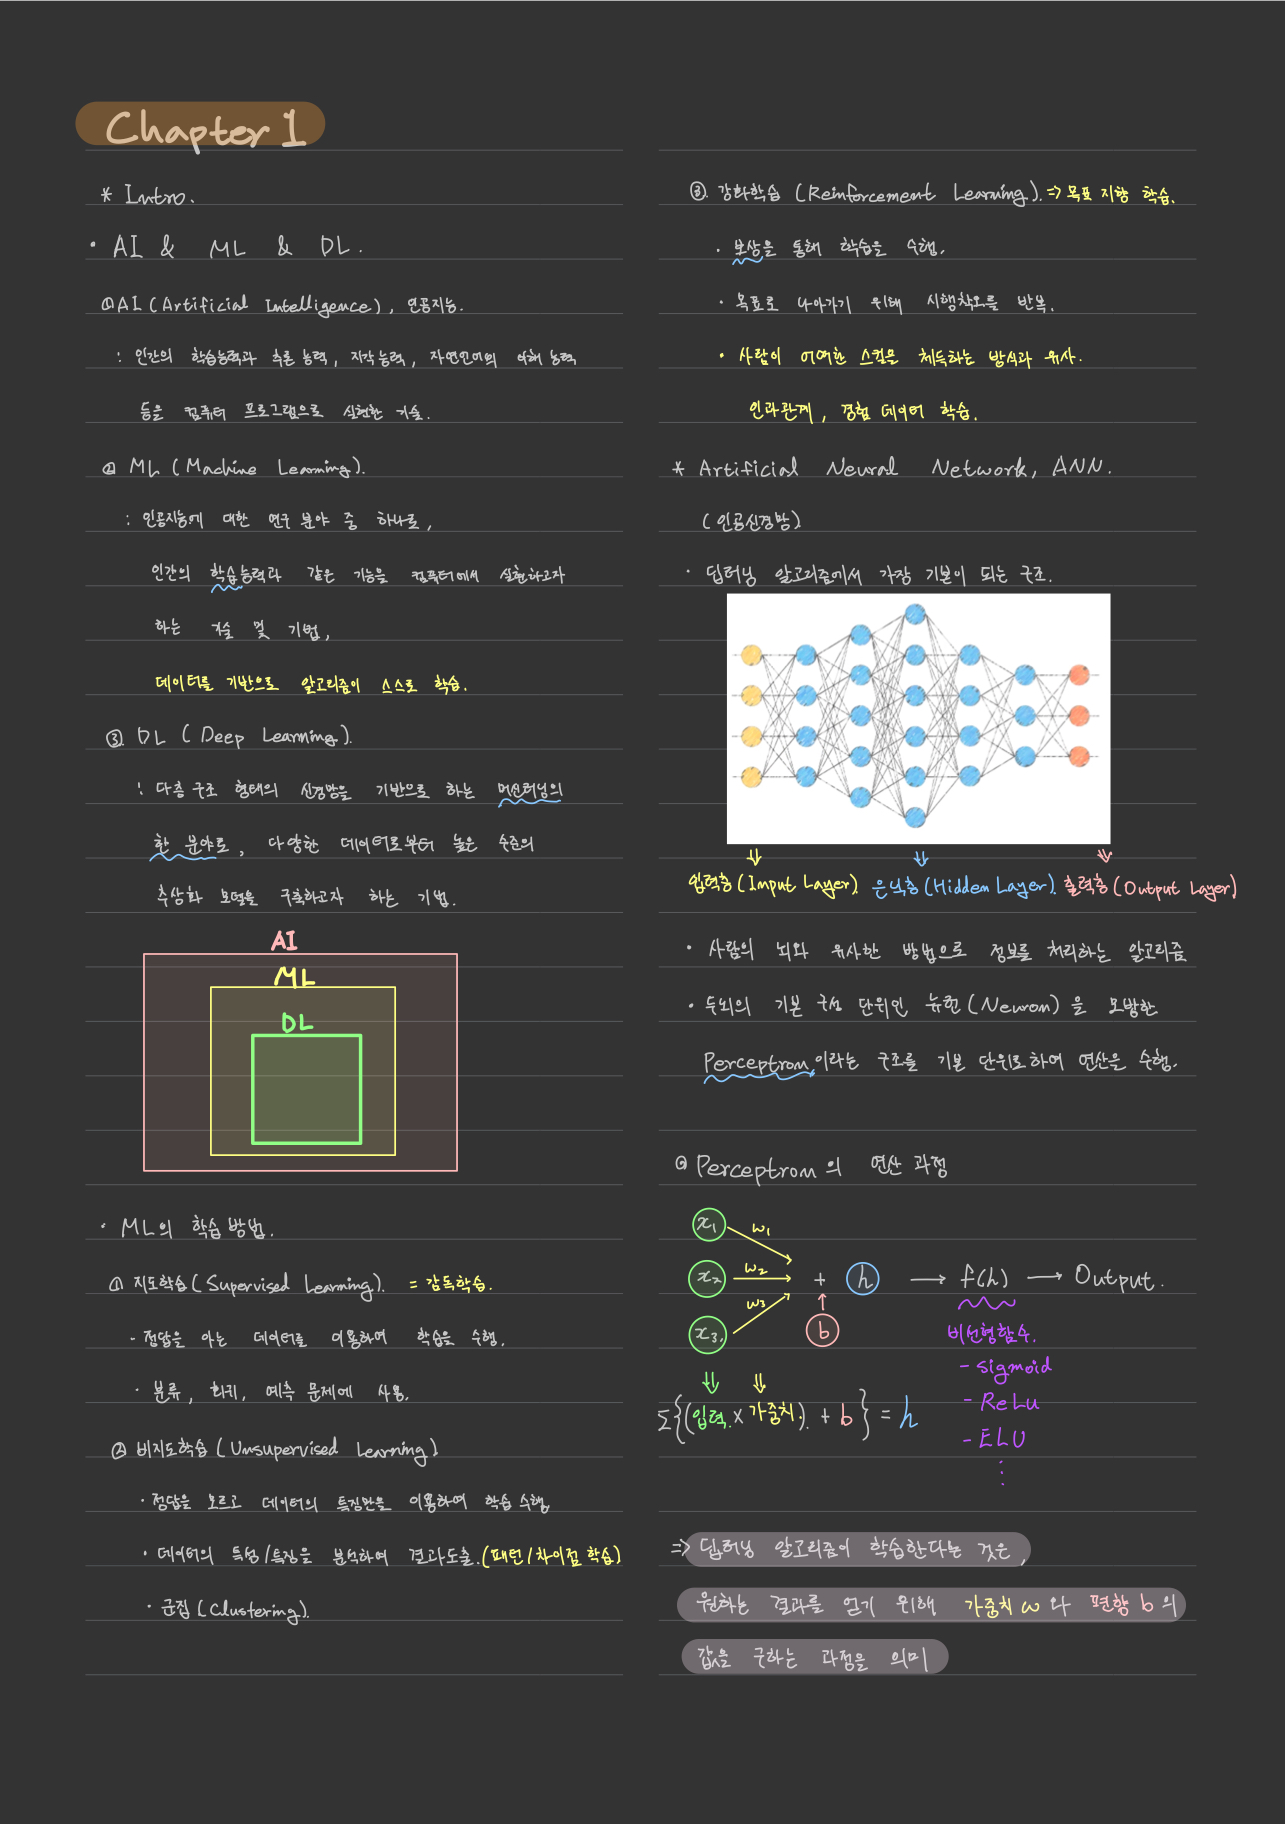 Chapter 1
* Intro.
· AI & ML & DL.
① AI (Artificial Intelligence), 인공지능.
: 인간의 학습능력과 추론 능력, 지각능력, 자연언어의 이해 능력
등을 컴퓨터 프로그램으로 실현한 기술.
② ML (Machine Learning).
: 인공지능에 대한 연구 분야 중 하나로,
인간의 학습능력과 같은 기능을 컴퓨터에서 실현하고자
하는 기술 및 기법,
데이터를 기반으로 알고리즘이 스스로 학습.
③. DL (Deep Learning).
: 다층 구조 형태의 신경망을 기반으로 하는 머신러닝의
한 분야로, 다양한 데이터로부터 높은 수준의
추상화 모델을 구축하고자 하는 기법.
AI
ML
DL
· ML의 학습 방법.
① 지도학습 (Supervised Learning). = 감독학습.
- 정답을 아는 데이터를 이용하여 학습을 수행.
· 분류, 회귀, 예측 문제에 사용.
② 비지도학습 (Unsupervised Learning)
· 정답을 모르고 데이터의 특징만을 이용하여 학습 수행.
· 데이터의 특성/특징을 분석하여 결과도출. (패턴/차이점 학습)
· 군집 (Clustering).
③. 강화학습 (Reinforcement Learning). => 목표 지향 학습.
· 보상을 통해 학습을 수행.
· 목표로 나아가기 위해 시행착오를 반복.
· 사람이 어떠한 스킬을 체득하는 방식과 유사.
인과관계, 경험 데이터 학습.
* Artificial Neural Network, ANN.
(인공신경망)
· 딥러닝 알고리즘에서 가장 기본이 되는 구조.
입력층 (Input Layer). 은닉층 (Hidden Layer). 출력층 (Output Layer)
· 사람의 뇌와 유사한 방법으로 정보를 처리하는 알고리즘
· 두뇌의 기본 구성 단위인 뉴런 (Neuron)을 모방한
Perceptron이라는 구조를 기본 단위로하여 연산을 수행.
Perceptron의 연산 과정
x₁ w₁
x₂ w₂ + h → f(h) → Output.
x₃. w₃ b
비선형함수.
- sigmoid
- ReLu
- ELU
⋮
Σ{(입력. × 가중치.) + b} = h
=> 딥러닝 알고리즘이 학습한다는 것은,
원하는 결과를 얻기 위해 가중치 w 와 편향 b의
값을 구하는 과정을 의미